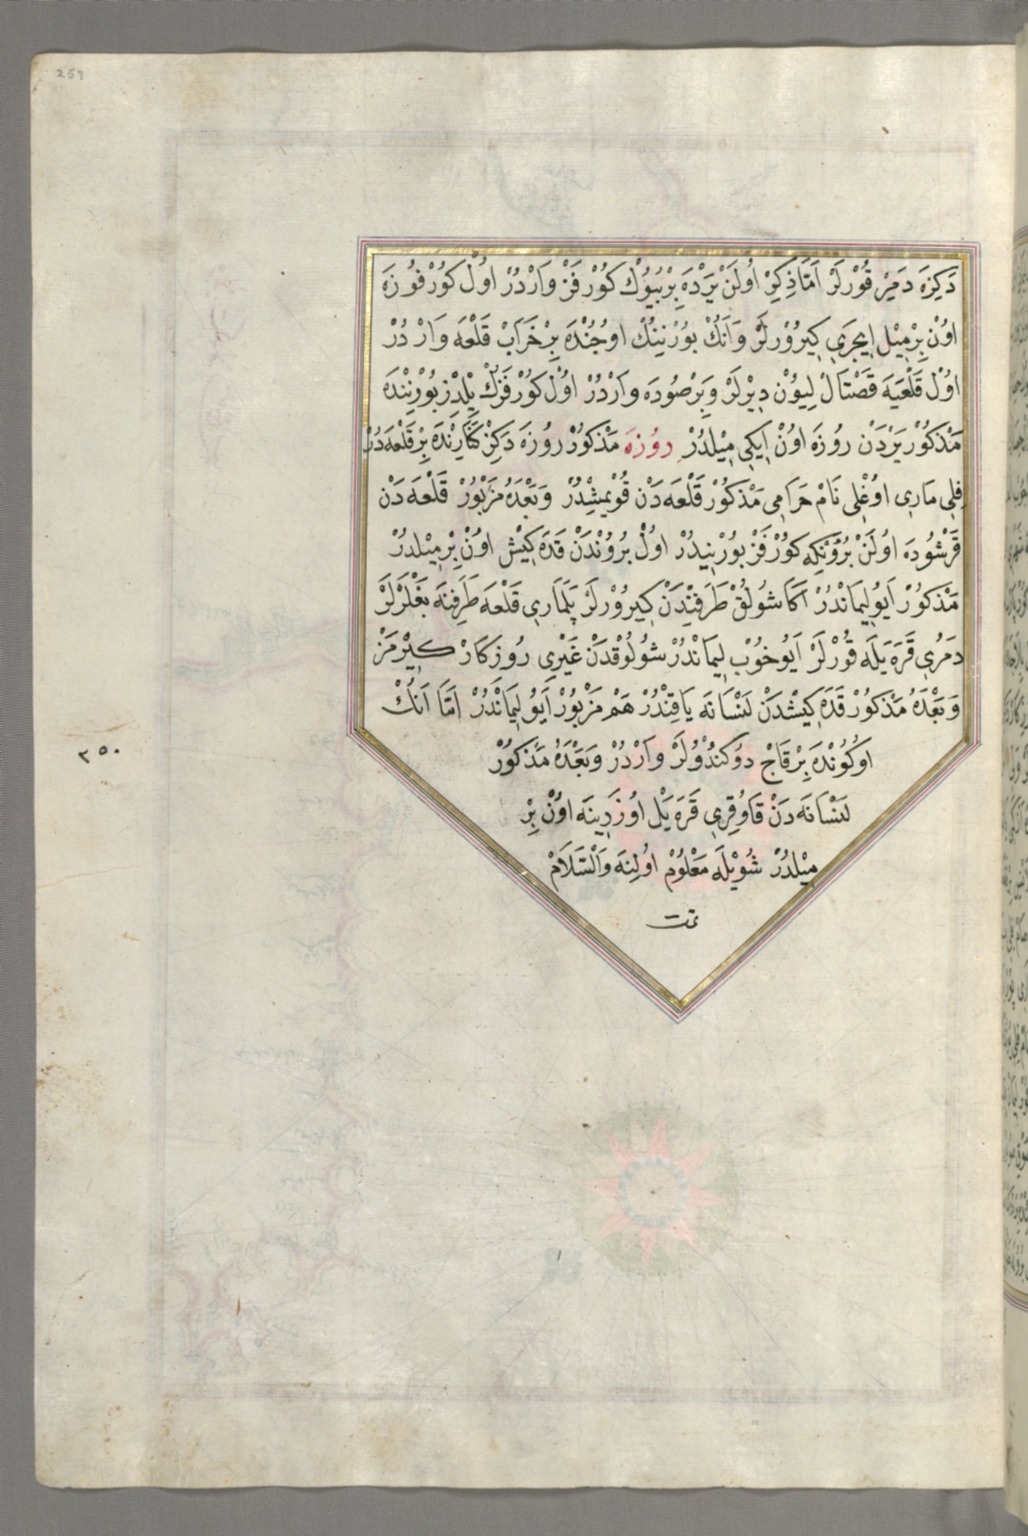 257
دَكِزَه دَمِيرْ قُورْلَرْ اَمَّا ذِكِرْ اُولَنْ يَرْدَه بِرْ بُيُوكْ كُورْفَزْ وَارْدُرْ اُولْ كُورْفُوزَه
اوُنْ بِرْ مِيلْ اِيچَرِي كِيرُورْلَرْ وَاَنُكْ بُورْنِينُكْ اوُجُنْدَه بِرْ خَرَابْ قَلْعَه وَارْدُرْ
اوُلْ قَلْعَيَه قَصْتَالْ لِيُونْ دِيرْلَرْ وَبِرْ صُودَه وَارْدُرْ اوُلْ كُورْفَزُكْ يِلْدِزْ بُورْنِنْدَه
مَذْكُورْ يَرْدَنْ رُوزَه اوُنْ اِيكِي مِيلْدُرْ رُوزَه مَذْكُورْ رُوزَه دَكِزْ كَنَارِنْدَه بِرْ قَلْعَه دُرْ
فِلِي مَارِي اوُغْلِي نَامْ حَرَامِي مَذْكُورْ قَلْعَه دَنْ قُوپْمِشْدُرْ وَبَعْدَهُ مَزْبُورْ قَلْعَه دَنْ
قَرْشُودَه اوُلَنْ بُرُونْكِه كُورْفَزْ بُورْنِيدُرْ اوُلْ بُرُونْدَنْ قَدَه كِيشْ اوُنْ بِرْ مِيلْدُرْ
مَذْكُورْ اَيُو لِيمَانْدُرْ اَكَا شُولُقْ طَرَفِنْدَنْ كِيرُورْلَرْ پَلَمَارِي قَلْعَه طَرَفِنَه بَغْلَرْلَرْ
دَمُرِي قَرَه يَلَه قُورْلَرْ اَيُو خُوبْ لِيمَانْدُرْ شُولُوقْدَنْ غَيْرِي رُوزِكَارْ كِيرْمَزْ
وَبَعْدَهُ مَذْكُورْ قَدَه كِيشْدَنْ لَنْسَانَه يَاقِنْدُرْ هَمْ مَزْبُورْ اَيُو لِيمَانْدُرْ اَمَّا اَنُكْ
اوُكُونْدَه بِرْقَاچْ دوُكُنْدُولَرْ وَارْدُرْ وَبَعْدَهُ مَذْكُورْ
لَنْسَانَه دَنْ قَاوُقِرِي قَرَه يَلْ اوُزَرِينَه اوُنْ بِرْ
مِيلْدُرْ شُويْلَه مَعْلُومْ اوُلِنَه وَالسَّلَامْ
تمت
٢٥٠